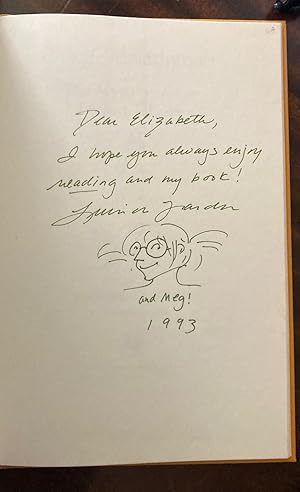 Dear Elizabeth,
I hope you always enjoy
reading and my book!
and Meg!
1993